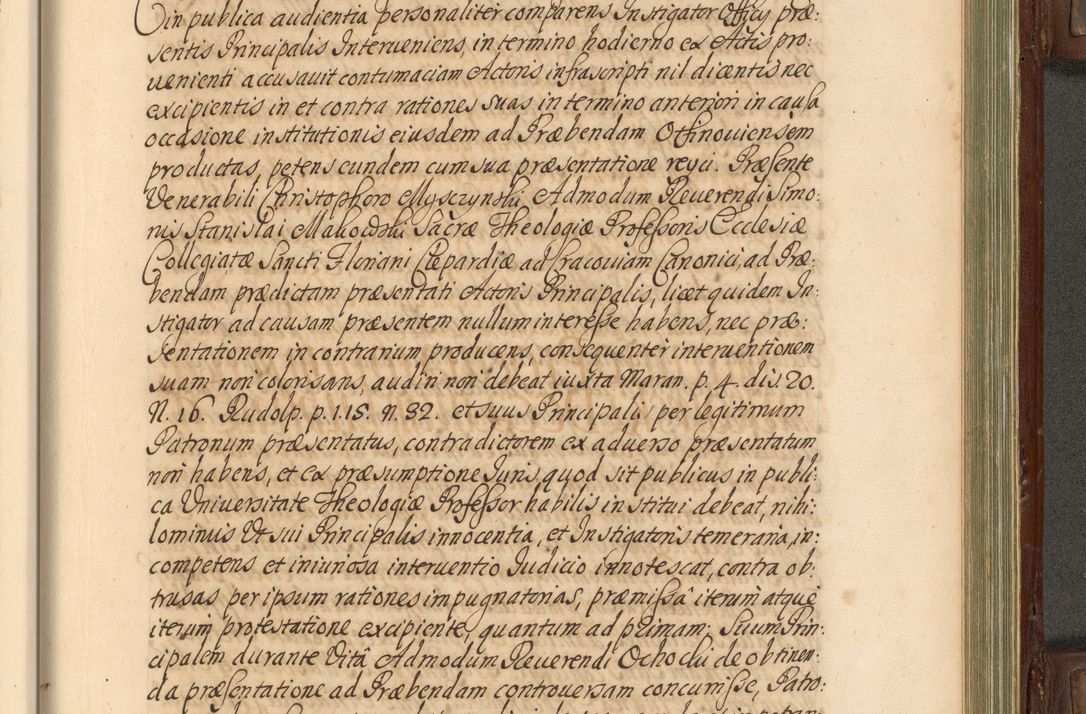 in publica audientia personaliter comparens Instigator Officij præ:
sentis Principalis Interveniens, in termino hodierno ex Actis pro:
uenienti accusauit contumaciam Actoris infrascripti nil dicentis nec
excipientis in et contra rationes suas in termino anteriori in causa
occasione institutionis eiusdem ad Præbendam Ossnouiensem
productas, petens eundem cum sua præsentatione reyci. Præsente
Venerabili Christophoro Mysczynski Admodum Reuerendi Simo:
nis Stanislai Makowski Sacræ Theologiæ Professoris Ecclesiæ
Collegiatæ Sancti Floriani Clepardiæ ad Cracouiam Canonici, ad Præ:
bendam prædictam præsentati Actoris Principalis, licet quidem In:
stigator ad causam præsentem nullum interesse habens, nec præ:
sentationem in contrarium producens, consequenter interuentionem
suam non colorisans, audiri non debeat iuxta Maran. p. 4. dis. 20.
N. 16. Rudolp. p. 1. 15. N. 32. et suus Principalis per legitimum
Patronum præsentatus, contradictorem ex aduerso præsentatum
non habens, et ex præsumptione Juris, quod sit publicus in publi:
ca Vniuersitate Theologiæ Professor habilis institui debeat, nihi:
lominus Vt sui Principalis innocentia, et Instigatoris temeraria, in:
competens et iniuriosa interuentio Judicio innotescat, contra ob:
trusas per ipsum rationes impugnatorias, præmissâ iterum atque
iterum protestatione excipiente, quantum ad primam: Suum Prin:
cipalem durante Vitâ Admodum Reuerendi Ochocki de obtinen:
da præsentatione ad Præbendam controuersam concurrisse, Patro: